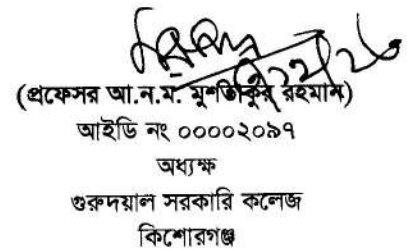 (প্রফেসর আ.ন.ম. মুশতাকুর রহমান)
আইডি নং ০০০০২০৯৭
অধ্যক্ষ
গুরুদয়াল সরকারি কলেজ
কিশোরগঞ্জ